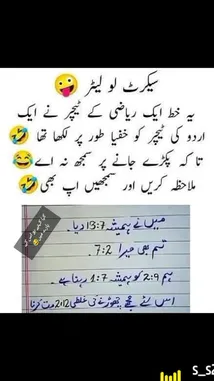 سیکرٹ لو لیٹر 🤪
یہ خط ایک ریاضی کے ٹیچر نے ایک
اردو کی ٹیچر کو خفیا طور پر لکھا تھا 🤣
تا کہ پکڑے جانے پر سمجھ نہ اے 😂
ملاحظہ کریں اور سمجھیں اپ بھی 🤣
میں نے ہمیشہ 13:7 دیا۔
تم بھی میرا 7:2
ہم 2:9 کو ہمیشہ 1:7 رہنا ہے۔
اس لئے مجھے چھوڑنے کی غلطی 2:12 مت کرنا
S_S2